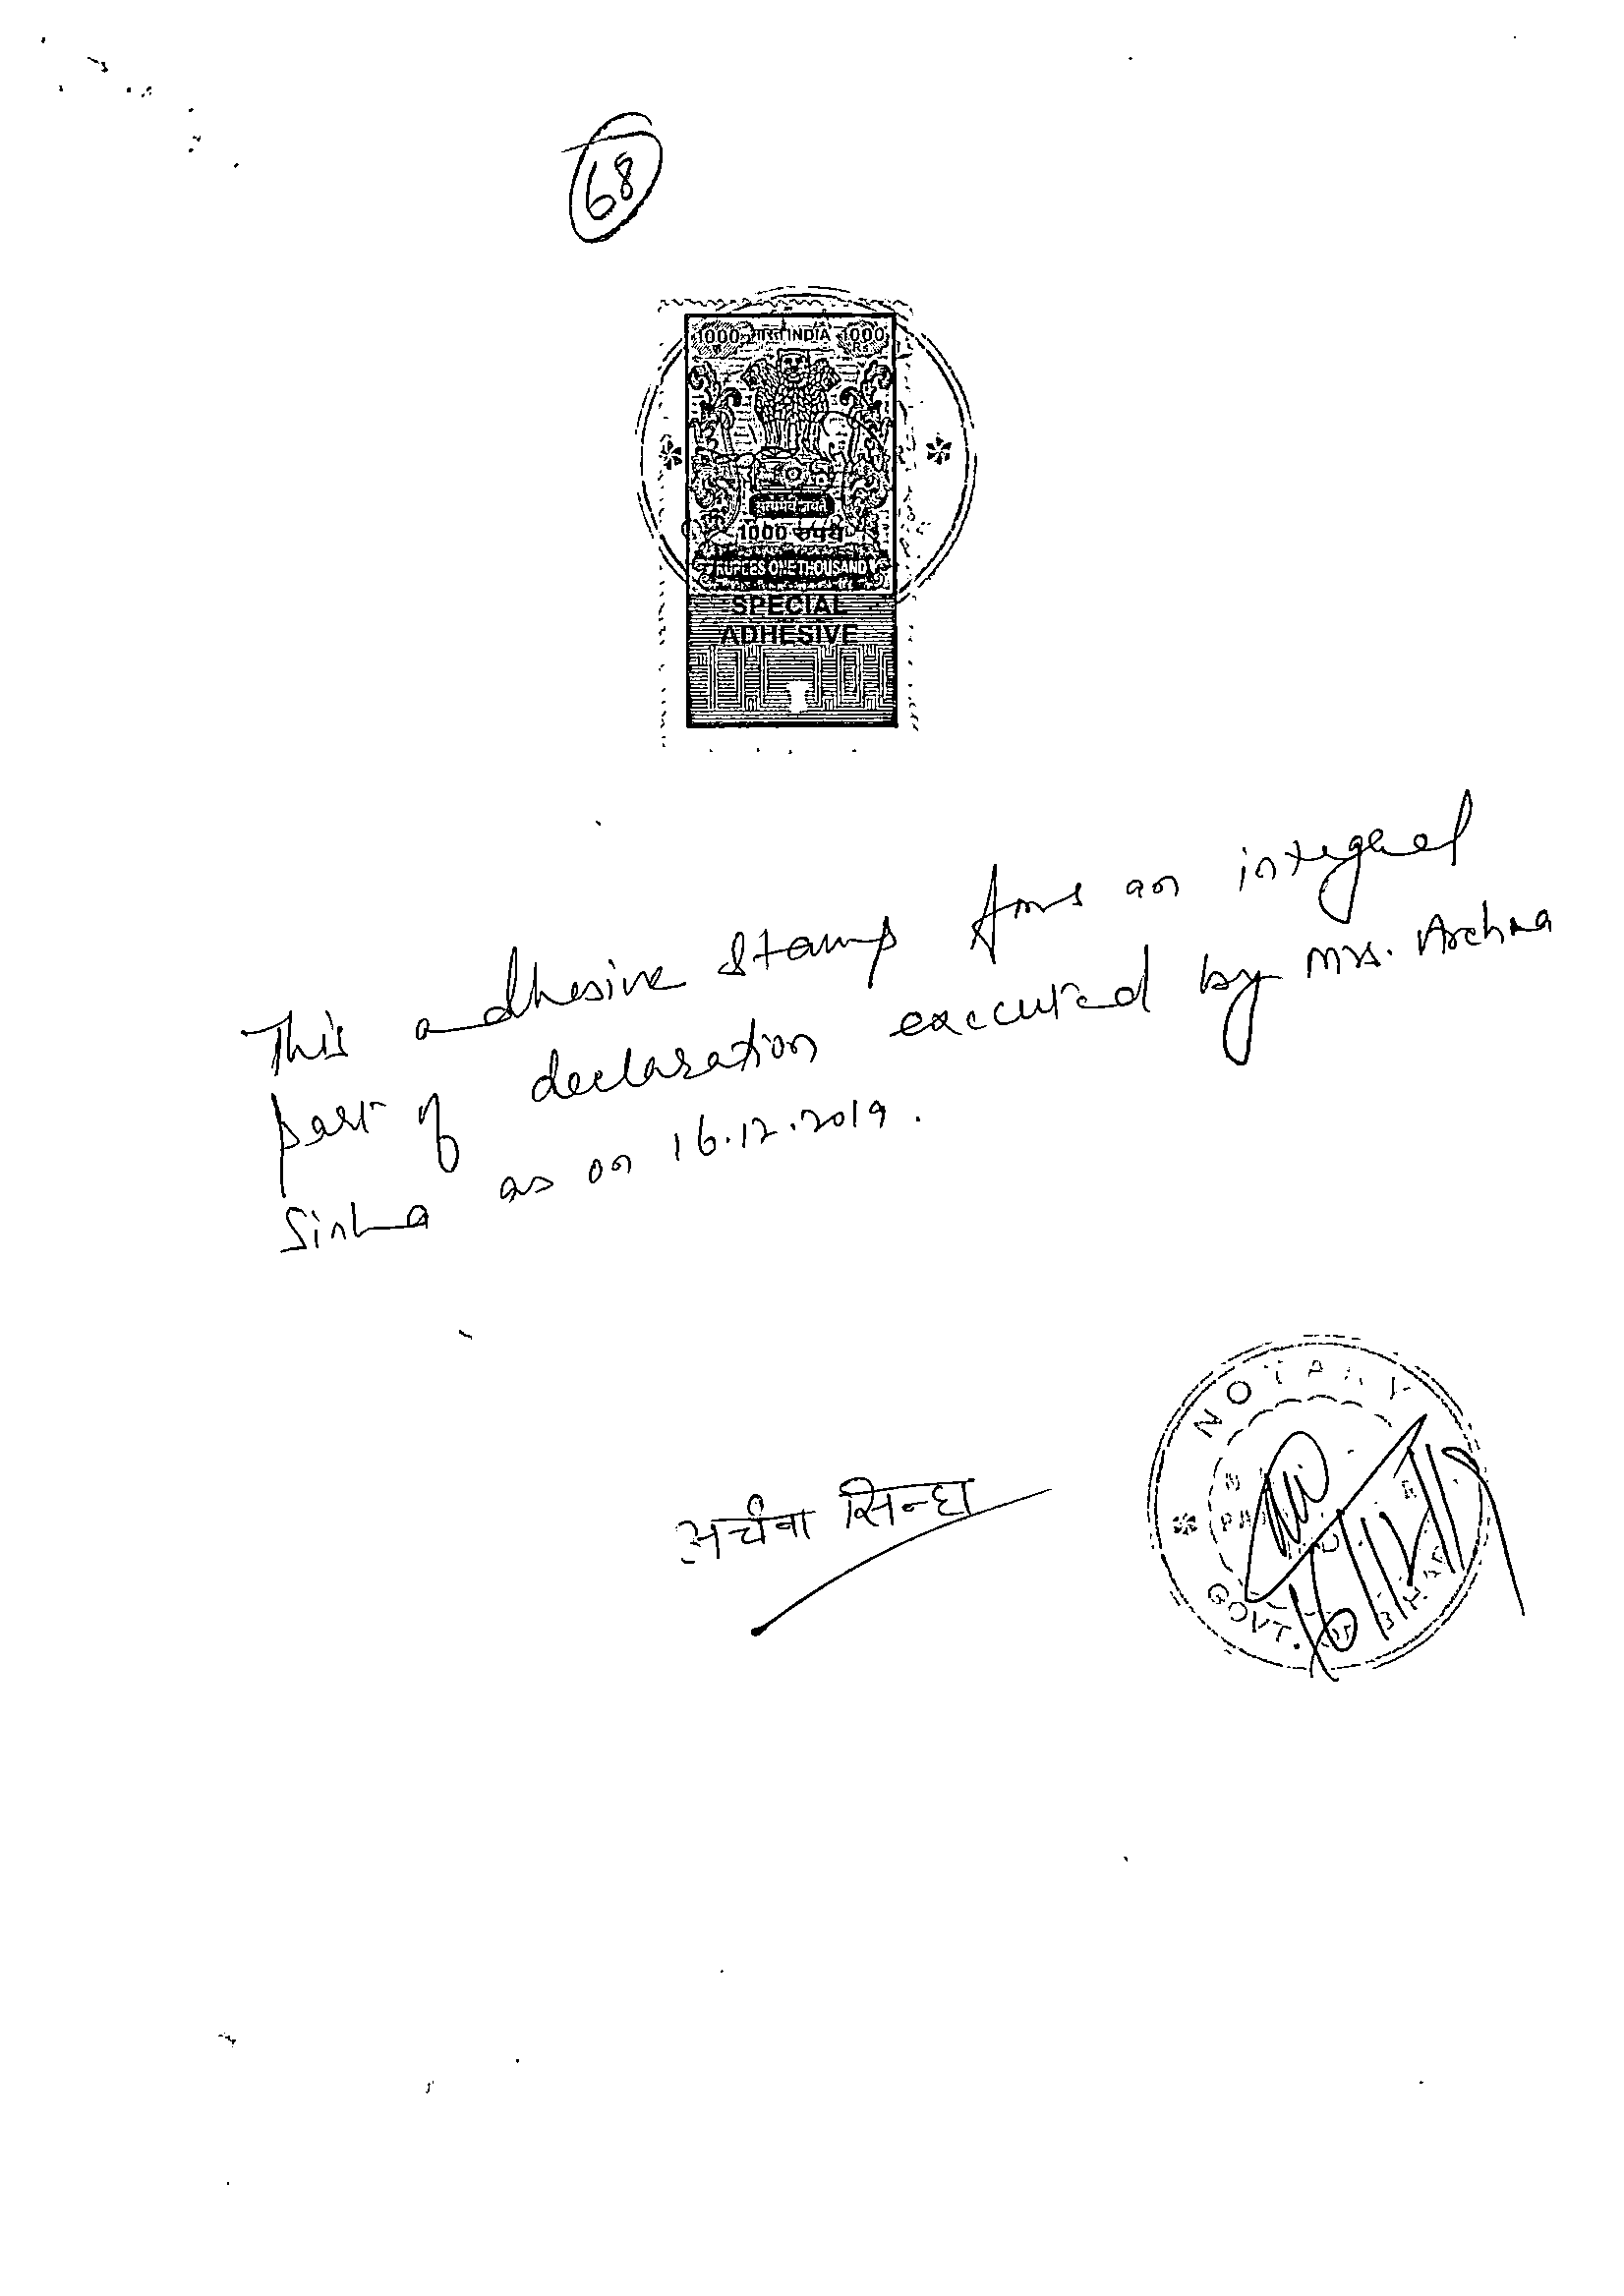 68
1000 भारत INDIA 1000
Rs.
सत्यमेव जयते
1000 रुपये
RUPEES ONE THOUSAND
SPECIAL
ADHESIVE
This adhesive stamp forms an integral
part of declaration executed by Mrs. Archna
Sinha as on 16.12.2019.
अर्चना सिन्हा
NOTARY
GOVT. OF BIHAR
16/12/19